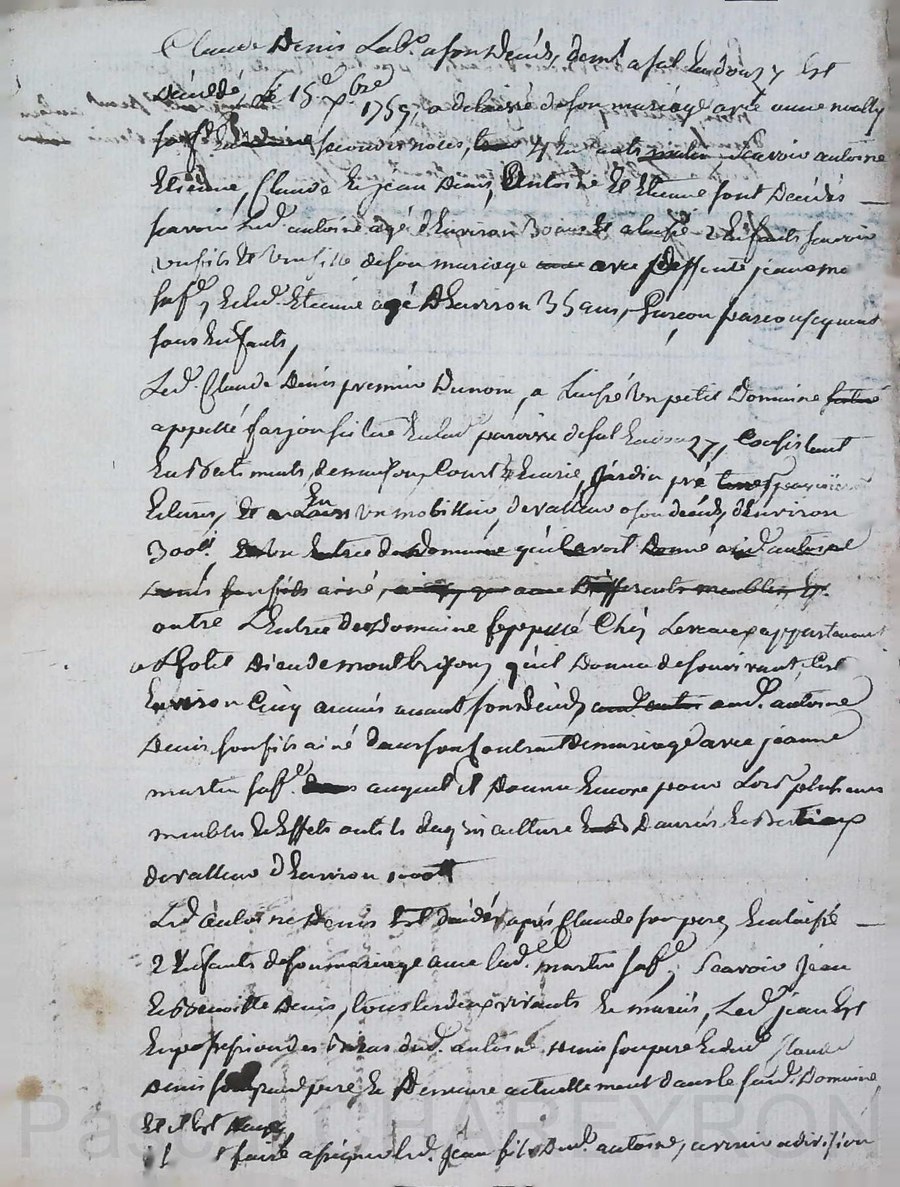 Claude Denis Lab.r a son Deceds, dem.t a sal En donzy Est
Décédé, le 15.e x.bre 1759, a delaissé de son mariage avec anne
sa f.e secondes noces, 4 Enfants Scavoir antoine
Etienne, Claude Et jean Denis, Antoine Et Etienne sont Décédés
scavoir led.t antoine agé d'Environ 30 ans Et a laissé 2 Enfants scavoir
un fils Et une fille de son mariage avec jeanne
sa f.e, Et led.t Etienne agé D'Environ 35 ans, Garçon
sans Enfants,
Led.t Claude Denis premier Du nom, a Laissé un petit Domaine situé
appellé farjon situé En lad.e paroisse de sal En donzy, Consistant
En Batiments, de maison, Cour Ecurie, jardin pré terres
Et un mobillier, de valleur a son décéds, d'Environ
300.lt, qu'il avoit Donné aud.t antoine
Denis son fils ainé, Différents meubles, Et
outre L'Entrée Des Domaine appellé Chéz appartenant
a L'hotel Dieu de montbrison, qu'il Donna de son vivant, C'est
Environ Cinq années avant son Décéds aud.t antoine
Denis son fils ainé dans son Contrat De mariage avec jeanne
martin sa f.e auquel il Donna Encore pour Lors plusieurs
meubles Et Effets outils d'agriculture Denrées Et Bestiaux
de valleur d'Environ 1000.lt
Led.t antoine Denis Est décédé après Claude son pere, Et a laissé
2 Enfants de son mariage avec lad.e martin sa f.e, Scavoir Jean
Et Denis, tous les deux vivants Et mariés, Led.t jean Est
En possession des Biens dud.t antoine Denis son pere Et dud.t Claude
Denis son grand pere Et Demeure actuellement dans le susd.t Domaine
Et il Est
1 faire assigner led.t Jean fils Dud.t antoine, a venir a division
Pascal CHAPEYRON